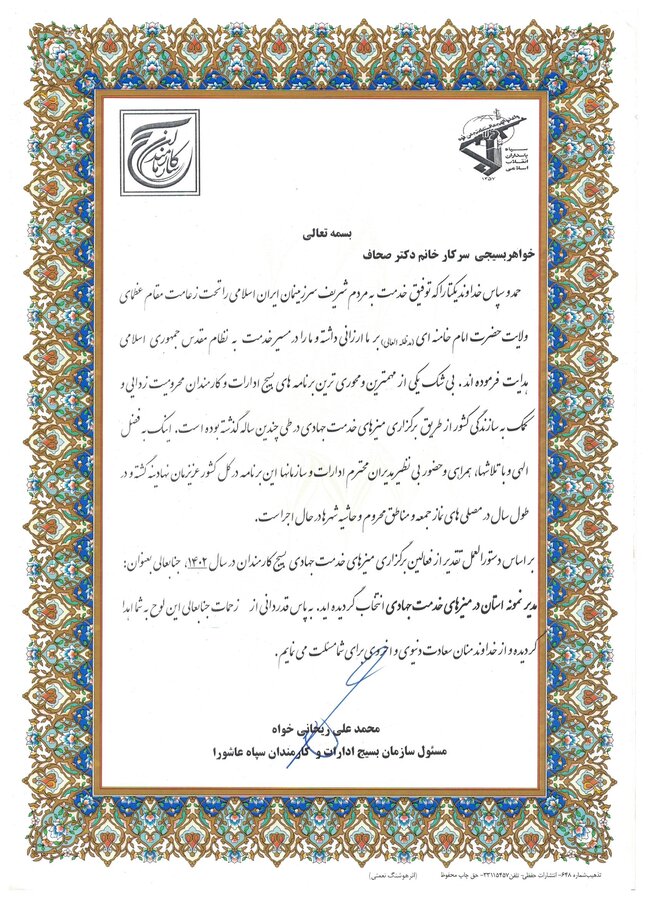 سپاه
پاسداران
انقلاب
اسلامی
۱۳۵۷
بسیج
کارمندان
بسمه تعالی
خواهربسیجی سرکار خانم دکتر صحاف
حمد و سپاس خداوند یکتا را که توفیق خدمت به مردم شریف سرزمینمان ایران اسلامی را تحت زعامت مقام عظمای
ولایت حضرت امام خامنه ای (مدظله العالی) بر ما ارزانی داشته و ما را در مسیر خدمت به نظام مقدس جمهوری اسلامی
هدایت فرموده اند. بی شک یکی از مهمترین و محوری ترین برنامه های بسیج ادارات و کارمندان محرومیت زدایی و
کمک به سازندگی کشور از طریق برگزاری میزهای خدمت جهادی در طی چندین ساله گذشته بوده است. اینک به فضل
الهی و با تلاشها، همراهی و حضور بی نظیر مدیران محترم ادارات و سازمانها این برنامه در کل کشور عزیزمان نهادینه گشته و در
طول سال در مصلی های نماز جمعه و مناطق محروم و حاشیه شهرها در حال اجراست.
بر اساس دستورالعمل تقدیر از فعالین برگزاری میزهای خدمت جهادی بسیج کارمندان در سال ۱۴۰۲، جنابعالی بعنوان:
مدیر نمونه استان در میزهای خدمت جهادی انتخاب گردیده اید. به پاس قدردانی از زحمات جنابعالی این لوح به شما اهدا
گردیده و از خداوند منان سعادت دنیوی و اخروی برای شما مسئلت می نمایم.
محمد علی ریحانی خواه
مسئول سازمان بسیج ادارات و کارمندان سپاه عاشورا
تذهیب شماره ۶۴۸- انتشارات حفظی- تلفن ۳۳۱۱۵۴۵۷- حق چاپ محفوظ (اثر هوشنگ نعمتی)